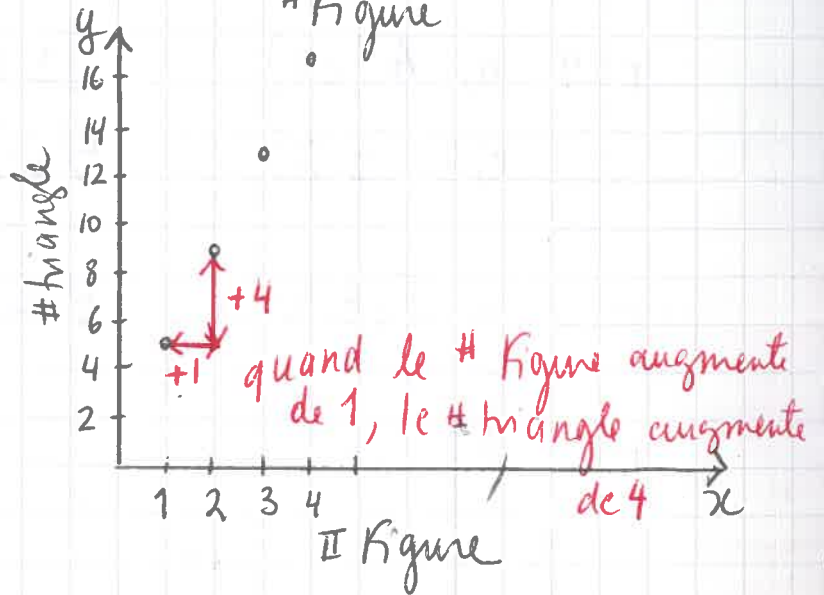 # Figure
y
16
14
12
10
8
6
4
2
# triangle
+4
+1
quand le # Figure augmente
de 1, le # triangle augmente
de 4
1 2 3 4
x
II Figure